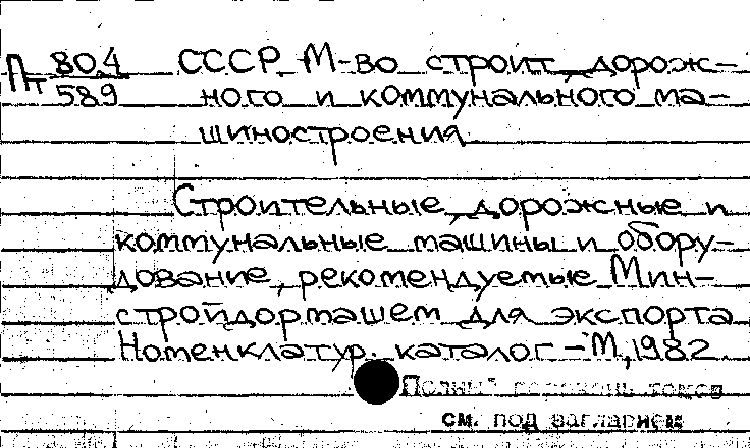 Пт 804/589 СССР М-во строит., дорож-
ного и коммунального ма-
шиностроения
Строительные, дорожные и
коммунальные машины и обору-
дование, рекомендуемые Мин-
стройдормашем для экспорта
Номенклатур. каталог - М, 1982
Полный перечень томов
см. под заглавием